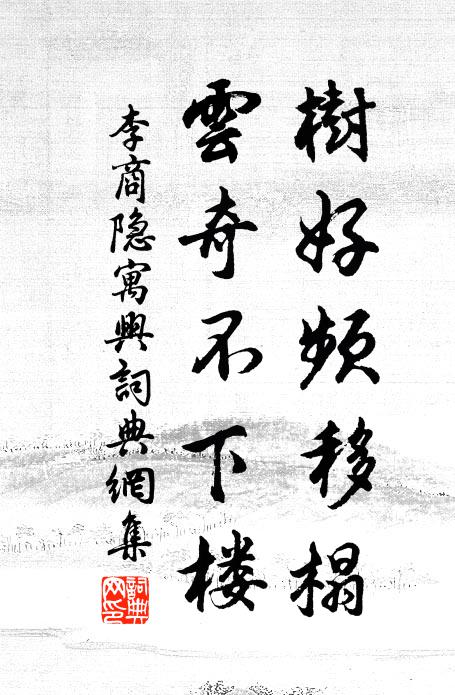 樹好頻移榻
雲奇不下楼
李商隐寓興詞典網集
詞典网印